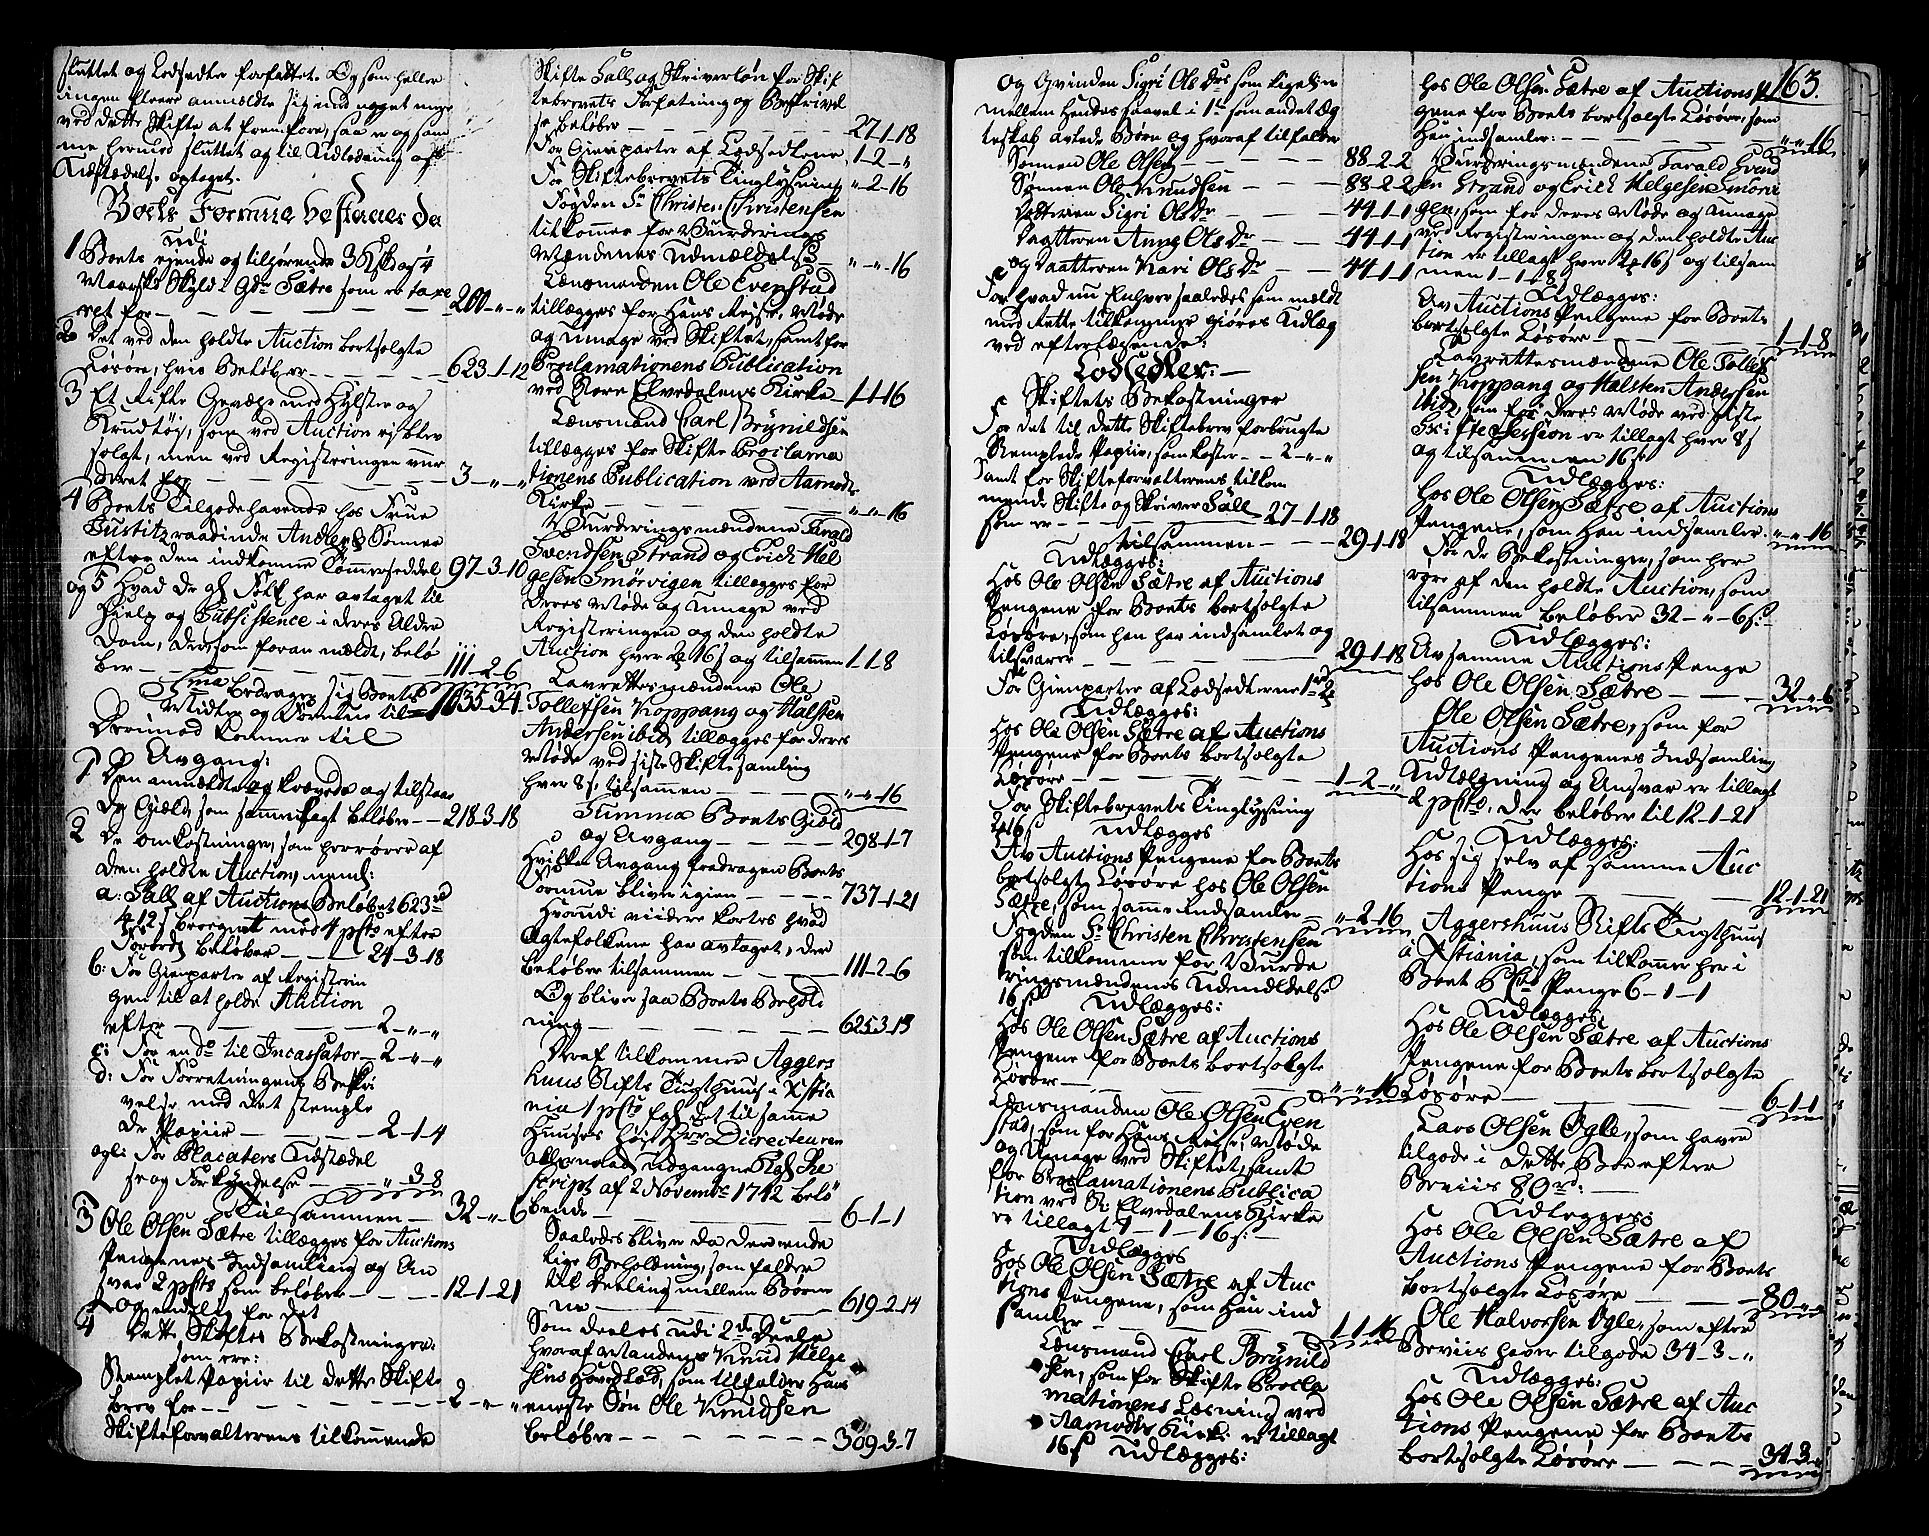 sluttet og Lodsedler forfattet. Og som heller
ingen fleere anmeldte sig med noget meere
ved dette Skifte at fremføre, saa er og sam
me hermed sluttet og til Udlodning af
Udstædelse optaget.
Boets Formue bestaaer da
udi
1 Boets eiende og tilhørende 3 Fskb og 4
Maarks Skyld i Gdn Sætre som er taxe
ret for — 200 - " - "
2 Det ved den holdte Auction bortsolgte
Løsøre, hvis Beløb er — 623-1-12
3 Et Riffe Gevær med Hylster og
Krudtøj, som ved Auction ej blev
solgt, men ved Registeringen vur
deret for — 3 - " - "
4 Boets Tilgodehavende hos Frue
Justitzraadinde Ancher & Sønner
efter den indkomne Tømmerseddel 97-3-10
og 5 Hvad de gl. Folk har aftaget til
Hielp og Subsistence i deres Aldre
dom, der som foran meldt, belø
ber — 111-2-6
Sma bedrager sig Boets
Midler og Formue til 1035-3-4
Derimod kommer til
Avgang:
1 Den anmeldte og krævede og tilstaae
de Giæld, som sammenlagt beløber — 218-3-18
2 De omkostninger, som hrørrer af
den holdte Auction, neml:
a: Sall af Auctions Beløbet 623 rd
1 12 s beregnet med 4 pCto efter
Forordn beløber — 24-3-18
b: For Gienparter af Registerin
gen til at holde Auction
efter — 2 - " - "
c: For en do til Incassator — 2 - " - "
d: For Forretningens Beskri
velse med det stemple
de Papiir — 2-1-4
og e: For Placaters Udstædel
se og Forkyndelse — " 3-8
Tilsammen — 32 - " - 6
3 Ole Olsen Sætre tillægges for Auctions
Pengenes Indsamling og An
svar 2 pCto som beløber — 12-1-21
og endelig for det
4 Dette Skiftes Bekostninger
som ere:
Stemplet Papiir til dette Skifte
brev for — 2 - " - "
Skifteforvalterens tilkommende
Skifte Sall og Skriverløn for Skif
tebrevets Forfatning og Beskrivel
se beløber — 27-1-18
For Gienparter af Lodsedlene — 1-2-"
For Skiftebrevets Tinglysning " - 2-16
Fogden Sr Christen Christensen
tilkommer for Vurderings
Mændenes Udmeldelse — " - " - 16
Lænsmanden Ole Evenstad
tillægges for Hans Rejse, Møde
og Umage ved Skiftet, samt for
Proclamationens Publication
ved Store Elvedalens Kirke — 1-1-16
Lænsmand Carl Brynildsen
tillægges for Skifte Proclama
tionens Publication ved Aamods
Kirke — " - " - 16
Vurderingsmændene Tarald
Svendsen Strand og Erich Hel
gesen Smørvigen tillægges for
deres Møde og Umage ved
Registeringen og den holdte
Auction hver 2 16 s og tilsammen 1-1-8
Lavrettesmændene Ole
Tollefsen Koppang og Halsten
Andersen ibid tillægges for deres
Møde ved siste Skiftesamling
hver 8 s. tilsammen — " - " - 16
Summa Boets Giæld
og Avgang — 298-1-7
Hvilke Avgang fradragen Boets
Formue bliver igien — 737-1-21
Hvorudi videre kortes hvad
Ægtefolkene har aftaget, der
beløber tilsammen — 111-2-6
Og bliver saa Boets Behold
ning — 625-3-15
Heraf tilkommer Aggers
huus Stifts Tugthuus i Xstia
nia 1 pCto følgl: det til samme
Huuses høje Hrr Directeuren
allernaad. udgangne Kgl. Re
script af 2 Novembr 1742 belø
bende — 6-1-1
Saaledes bliver da den ende
lige Beholdning, som falder
til deeling mellem Børne
ne — 619-2-14
Som deeles udi 2de Deele
hvoraf Mandens Knud Helge
sens Hovedlod, som tilfalder Hans
eneste Søn Ole Knudsen
beløber — 309-3-7
163.
og Qvinden Sigri Ols Dr som ligedeeles
mellem hendes saavel i 1te som andet Æg
teskab avlede Børn og hvoraf tilfalder
Sønnen Ole Olsen — 88-2-2
Sønnen Ole Knudsen — 88-2-2
Datteren Sigri Ols Dr — 44-1-1
Daatteren Anne Ols Dr — 44-1-1
og Daatteren Kari Ols Dr — 44-1-1
For hvad nu Enhver saaledes som mældt
med Rette tilkommer giøres Udlæg
ved efterlæssende:
Lodsedler: —
Skiftets Bekostninger
For det til dette Skiftebrev forbrugte
Stemplede Papiir, som koster — 2 - " - "
Samt for Skifteforvalterens tilkom
mende Skifte og Skriver Sall
som er — 27-1-18
tilsammen — 29-1-18
Udlægges:
Hos Ole Olsen Sætre af Auctions
Pengene for Boets bortsolgte
Løsøre, som han har indsamlet og
tilsvarer — 29-1-18
For Gienparter af Lodsedlerne 1 rd 2
Udlægges:
Hos Ole Olsen Sætre af Auctions
Pengene for Boets bortsolgte
Løsøre — 1-2-"
For Skiftebrevets Tinglysning
2 16 s Udlægges
Av Auctions Pengene for Boets
bortsolgte Løsøre hos Ole Olsen
Sætre, som samme indsamler " - 2-16
Fogden Sr Christen Christensen
som tilkommer for Vurde
ringsmændenes Udmeldelse
16 s Udlægges:
Hos Ole Olsen Sætre af Auctions
Pengene for Boets bortsolgte
Løsøre — " - " - 16
Lænsmanden Ole Olsen Even
stad, som for Hans Reise, Møde
og Umage ved Skiftet, samt
for Proclamationens Publica
tion ved St Elvedalens Kirke
er tillagt 1-1-16 s: —
Udlægges
Hos Ole Olsen Sætre af Auc
tions Pengene, som Han ind
samler — 1-1-16
Lænsmand Carl Brynild
sen, som for Skifte Procla
mationens Læsning ved
Aamodts Kirk: er tillagt
16 s Udlægges:
hos Ole Olsen Sætre af Auctions Pen
gene for Boets bortsolgte Løsøre, som
Han indsamler: — " - " 16
Vurderingsmændene Tarald Svend
sen Strand og Erich Helgesen Smørvi
gen, som for deres Møde og Umage
ved Registeringen og den holdte Auc
tion er tillagt hver 2 16 s og tilsam
men 1-1-8
Udlægges:
Av Auctions Pengene for Boets
bortsolgte Løsøre — 1-1-8
Lavrettesmændene Ole Tollef
sen Koppang og Halsten Andersen
ibid, som for deres Møde ved siste
Skifte Session er tillagt hver 8 s
og tilsammen 16 s
Udlægges:
Hos Ole Olsen Sætre af Auctions
Pengene, som Han indsamler. " - " - 16
For de Bekostninger, som her
røre af den holdte Auction, som
tilsammen beløber 32 - " - 6 s: —
Udlægges:
Av samme Auctions Penge
hos Ole Olsen Sætre — 32 " 6
Ole Olsen Sætre, som for
Auctions Pengenes Indsamling
Udlægning og Ansvar er tillagt
2 pCto, der beløber til 12-1-21
Udlægges:
Hos sig selv af samme Auc
tions Penge — 12-1-21
Aggershuus Stifts Tugthuus
i Xstiania, som tilkommer her i
Boet PCto Penge 6-1-1
Udlægges:
Hos Ole Olsen Sætre af Auctions
Pengene for Boets bortsolgte
Løsøre — 6-1-1
Lars Olsen Ogle, som haver
tilgode i dette Boe efter
Beviis 80 rd: —
Udlægges:
Hos Ole Olsen Sætre af
Auctions Pengene for Boets
bortsolgte Løsøre — 80 - " - "
Ole Halvorsen Ogle, som efter
Beviis haver tilgode 34-3-"
Udlægges:
Hos Ole Olsen Sætre af Auc
tions Pengene for Boets
bortsolgte Løsøre — 34-3-"